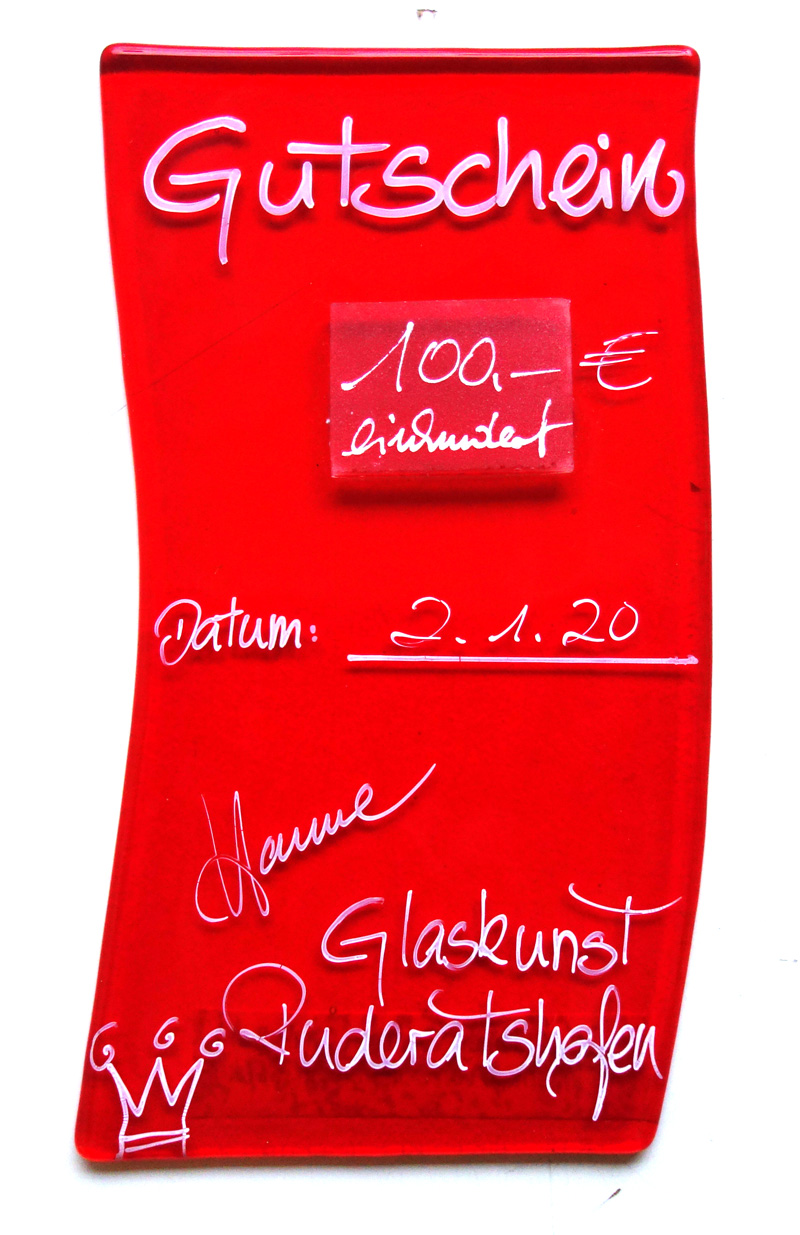 Gutschein
100,- €
einhundert
Datum: 2.1.20
Hanne
Glaskunst
Ruderatshofen